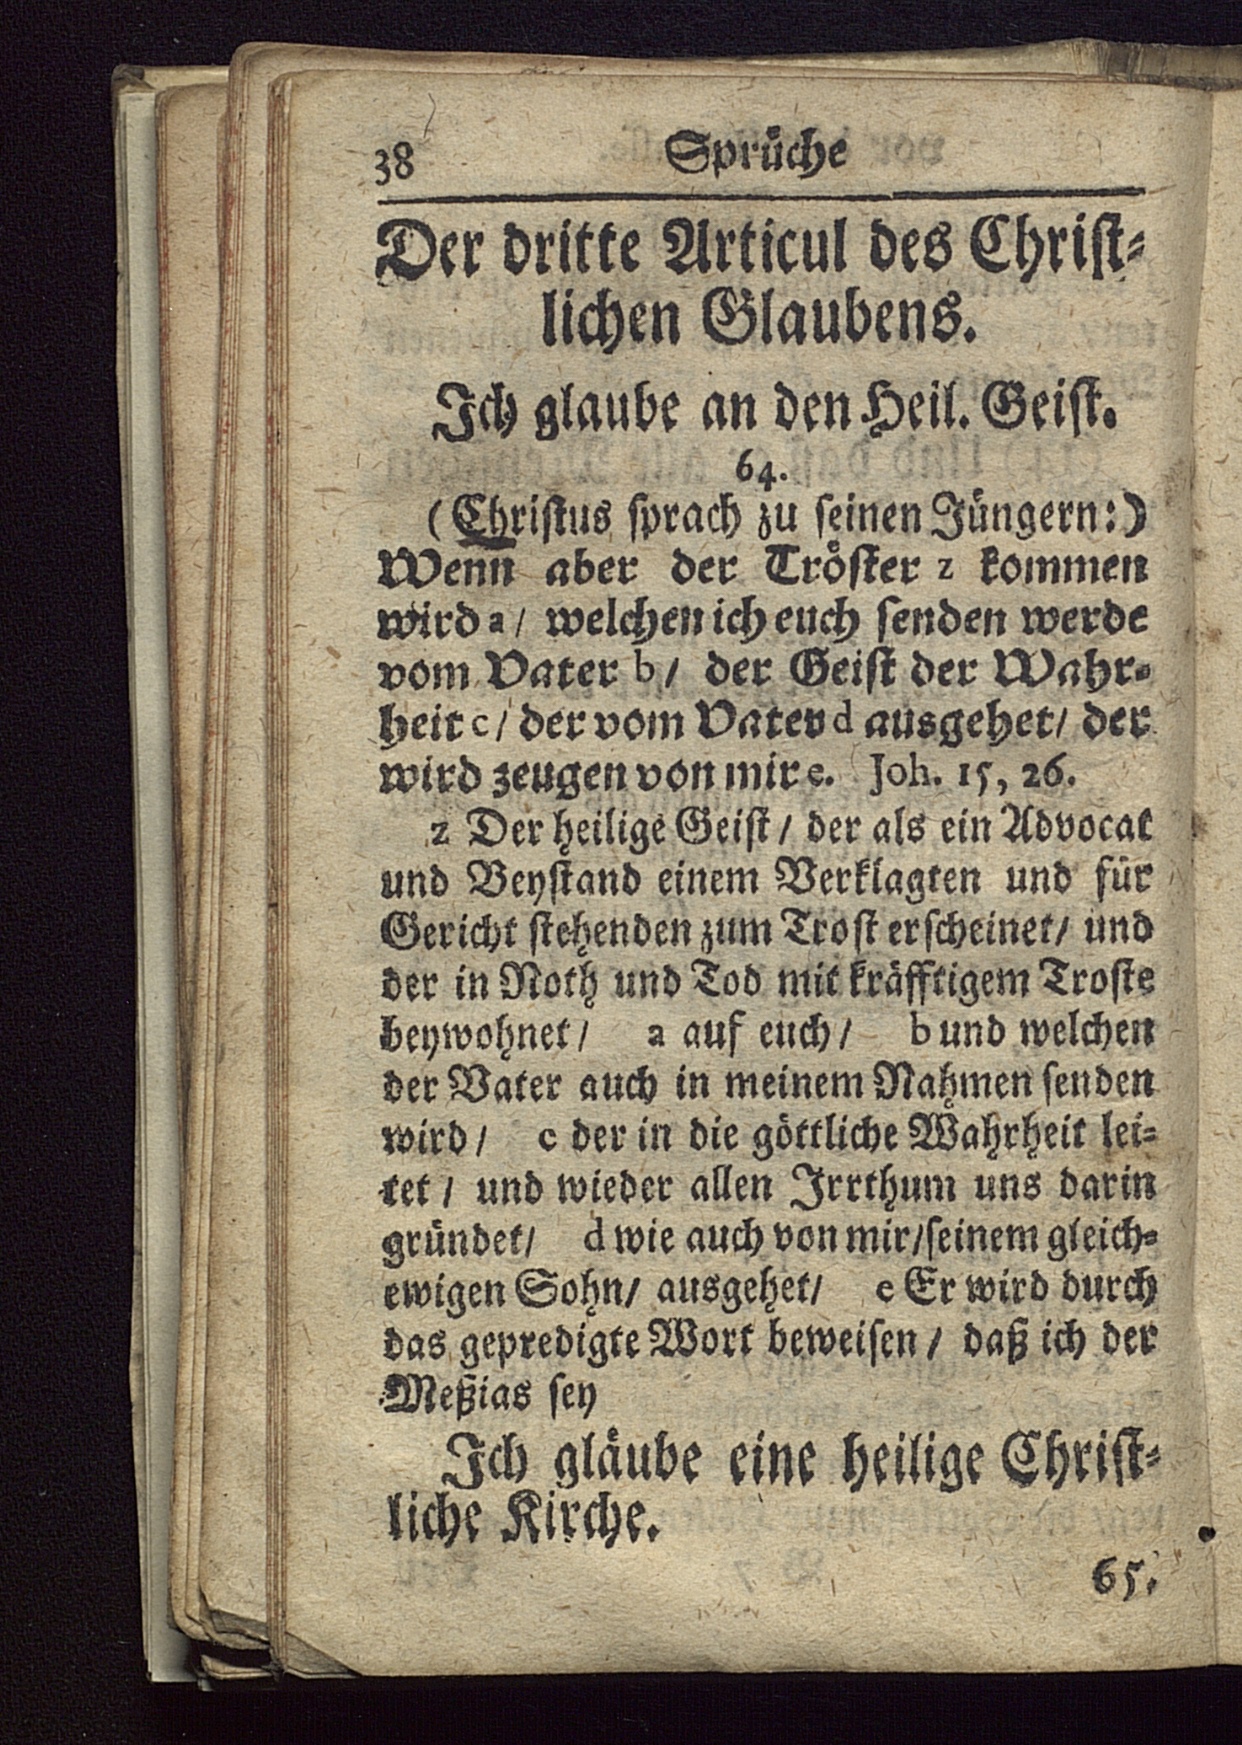 38 Sprüche
Der dritte Articul des Christ-
lichen Glaubens.
Ich glaube an den Heil. Geist.
64.
(Christus sprach zu seinen Jüngern:)
Wenn aber der Tröster z kommen
wird a/ welchen ich euch senden werde
vom Vater b/ der Geist der Wahr-
heit c/ der vom Vater d ausgehet/ der
wird zeugen von mir e. Joh. 15, 26.
z Der heilige Geist/ der als ein Advocat
und Beystand einem Verklagten und für
Gericht stehenden zum Trost erscheinet/ und
der in Noth und Tod mit kräfftigem Troste
beywohnet/ a auf euch/ b und welchen
der Vater auch in meinem Nahmen senden
wird/ c der in die göttliche Wahrheit lei-
tet/ und wieder allen Irrthum uns darin
gründet/ d wie auch von mir/seinem gleich-
ewigen Sohn/ ausgehet/ e Er wird durch
das gepredigte Wort beweisen/ daß ich der
Meßias sey
Ich gläube eine heilige Christ-
liche Kirche.
65.